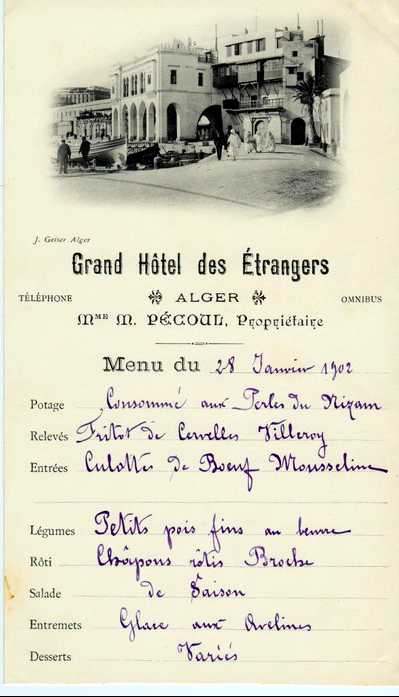 J. Geiser Alger
Grand Hôtel des Étrangers
TÉLÉPHONE ALGER OMNIBUS
MME M. PÉCOUL, Propriétaire
Menu du 28 Janvier 1902
Potage Consommé aux Perles du Nizam
Relevés Fritot de Cervelles Villeroy
Entrées Culottes de Boeuf Mousseline
Légumes Petits pois fins au beurre
Rôti Châpons rôtis Broche
Salade de Saison
Entremets Glace aux Avelines
Desserts Variés